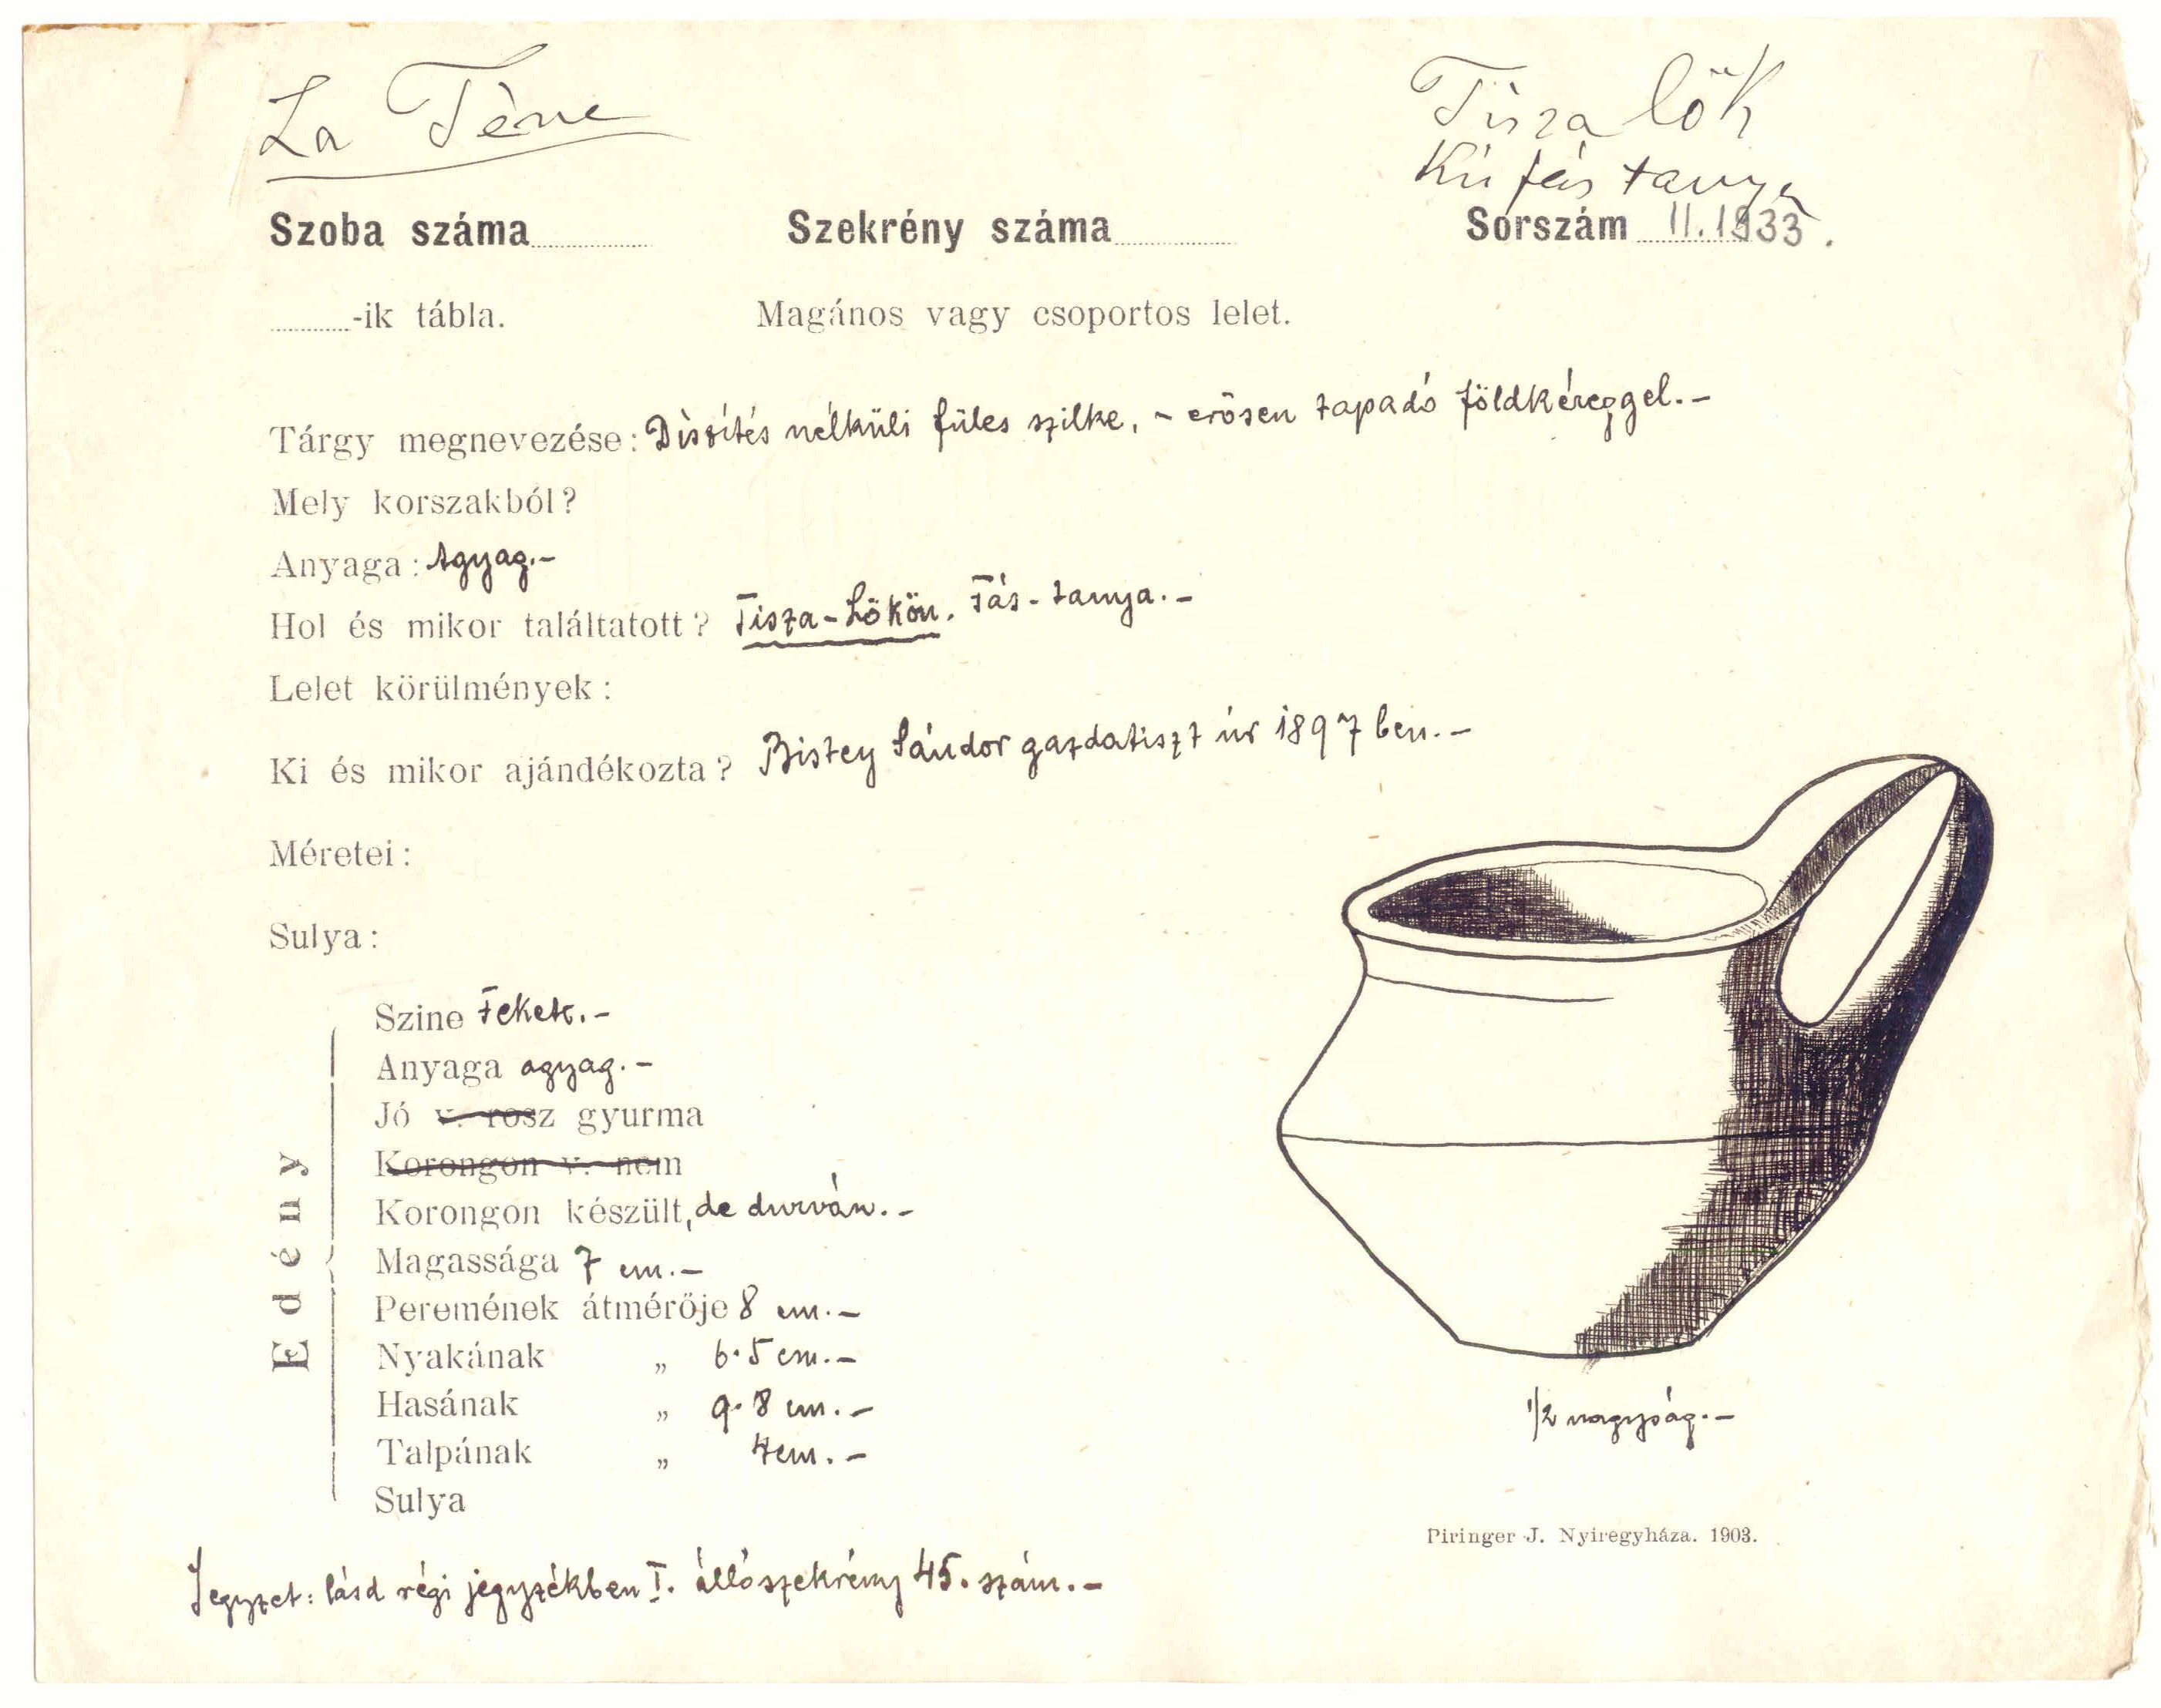 La Tène
Tiszalök
Kis fás tanya
Szoba száma
Szekrény száma
Sorszám 11.1933.
-ik tábla.
Magános vagy csoportos lelet.
Tárgy megnevezése: Diszítés nélküli füles szilke, - erösen tapadó földkéreggel.-
Mely korszakból?
Anyaga: Agyag.-
Hol és mikor találtatott? Tisza-Lökön. Fás-tanya.-
Lelet körülmények:
Ki és mikor ajándékozta? Bistey Sándor gazdatiszt úr 1897 ben.-
Méretei:
Sulya:
Edény
Szine Fekete.-
Anyaga agyag.-
Jó v. rosz gyurma
Korongon v. nem
Korongon készült, de durván.-
Magassága 7 cm.-
Peremének átmérője 8 cm.-
Nyakának „ 6.5 cm.-
Hasának „ 9.8 cm.-
Talpának „ 4cm.-
Sulya
1/2 nagyság.-
Piringer J. Nyiregyháza. 1903.
Jegyzet: lásd régi jegyzékben I. állószekrény 45. szám.-